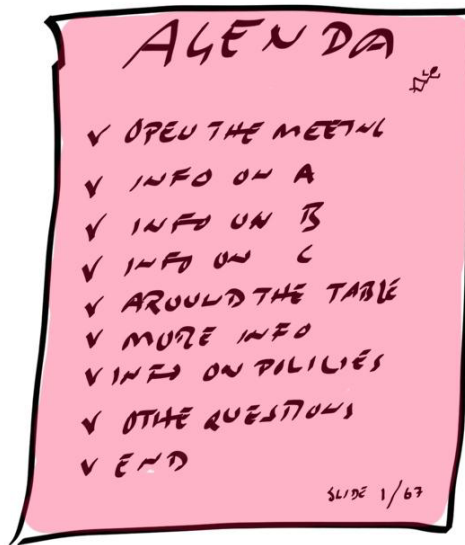 AGENDA
✓ OPEN THE MEETING
✓ INFO ON A
✓ INFO ON B
✓ INFO ON C
✓ AROUND THE TABLE
✓ MORE INFO
✓ INFO ON POLICIES
✓ OTHE QUESTIONS
✓ END
SLIDE 1/67